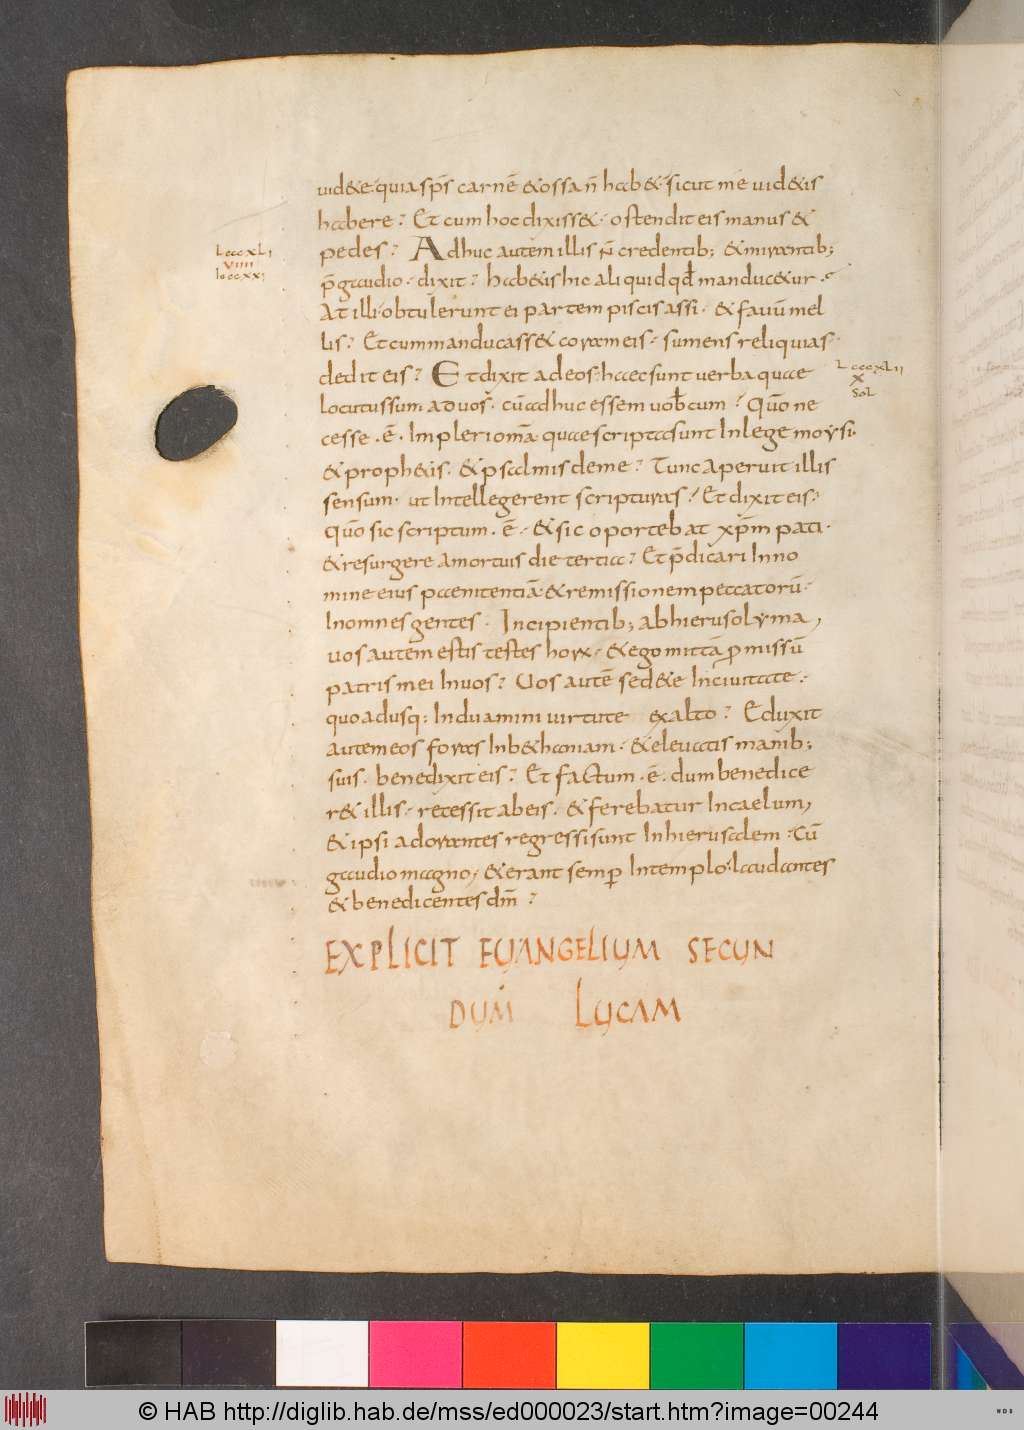 uid&e· quia sp̄s carnē & ossa n̄ hab& · sicut me uid&is
habere? Et cum hoc dixiss& · ostendit eis manus &
pedes? Adhuc autem illis n̄ credentib; & mirantib;
LcccXLI
VIIII
lcccxxI
p̄ gaudio · dixit? hab&is hic aliquid qđ manduc&ur ·
At illi · obtulerunt ei partem piscis assi · & fauū mel
lis? Et cum manducass& coram eis · sumens reliquias
dedit eis? Et dixit ad eos · haec sunt uerba quae
LcccXLII
X
SoL
locutus sum ad uos · cū adhuc essem uob̄cum? Quō ne
cesse · ē · Impleri omā quae scripta sunt In lege moysi ·
& proph&is · & psalmis de me? Tunc aperuit illis
sensum · ut Intellegerent scripturas? Et dixit eis?
Quō sic scriptum · ē · & sic oportebat xp̄m pati ·
& resurgere a mortuis die tertia? Et p̄dicari In no
mine eius paenitentiā · & remissionem peccatorū ·
In omnes gentes · Incipientib; ab hierusolyma,
uos autem estis testes horꝝ · & ego mittā ꝓmissū
patris mei In uos? Uos autē sed&e In ciuitate ·
quo adusq: Induamini uirtute ex alto? Eduxit
autem eos foras In b&haniam · & eleuatis manib;
suis · benedixit eis? Et factum · ē · dum benedice
r& illis · recessit ab eis · & ferebatur In caelum,
& ipsi adorantes regressi sunt In hierusalem · Cū
gaudio magno, & erant semꝑ In templo · laudantes
& benedicentes dm̄?
EXPLICIT EUANGELIUM SECUN
DUM LUCAM
© HAB http://diglib.hab.de/mss/ed000023/start.htm?image=00244